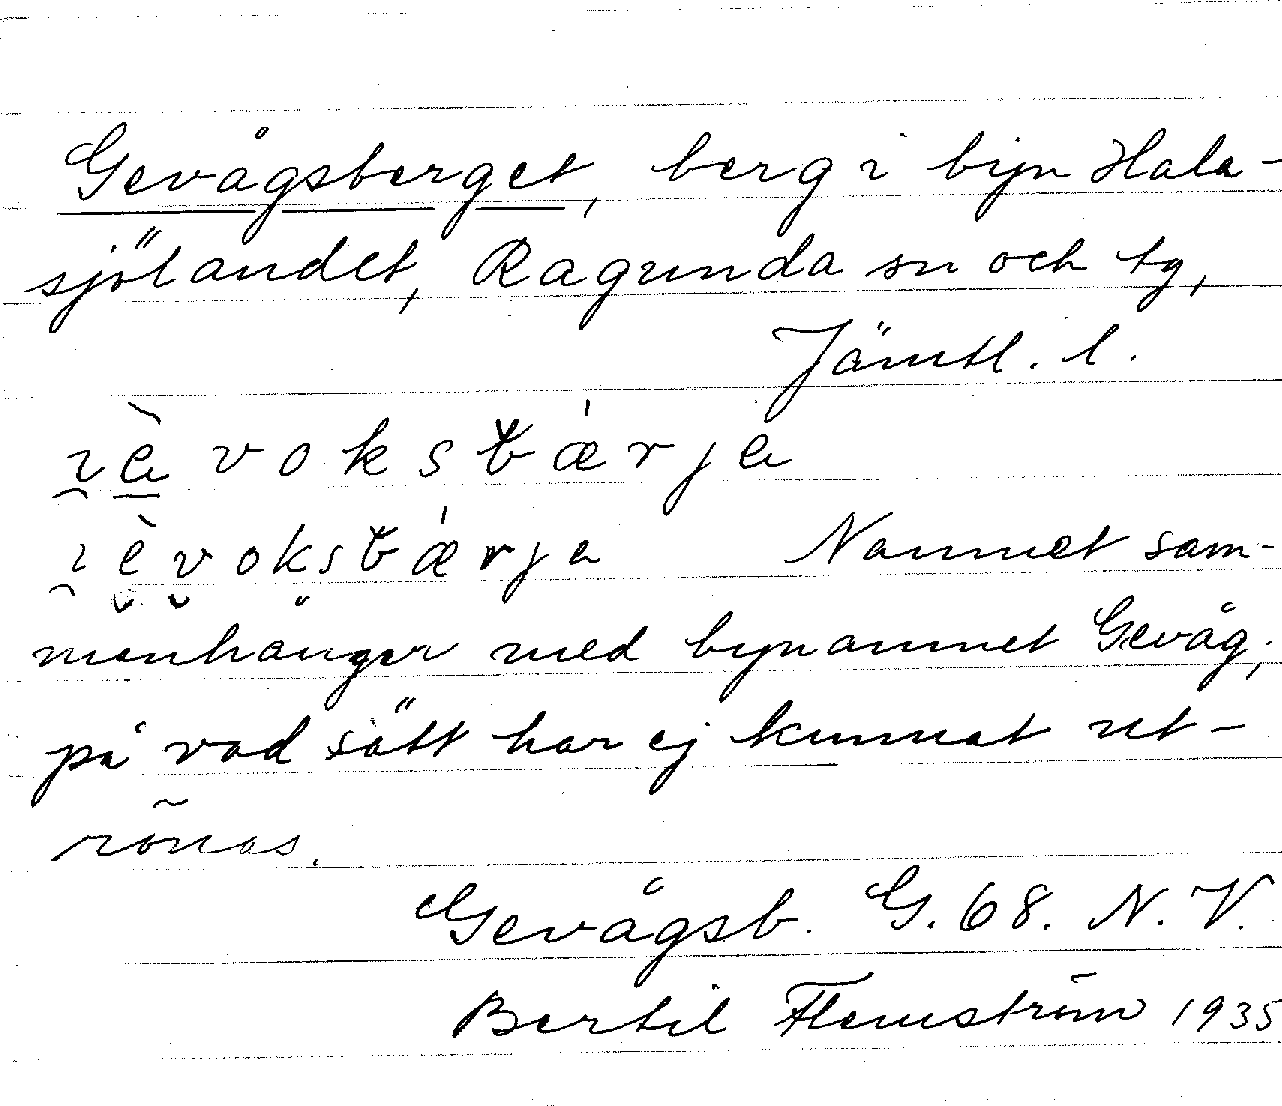 Gevågsberget, berg i byn Hala-
sjölandet, Ragunda sn och tg,
Jämtl. l.
Namnet sam-
manhänger med bynamnet Gevåg;
på vad sätt har ej kunnat ut-
rönas.
Gevågsb. G. 68. N. V.
Bertil Flemström 1935